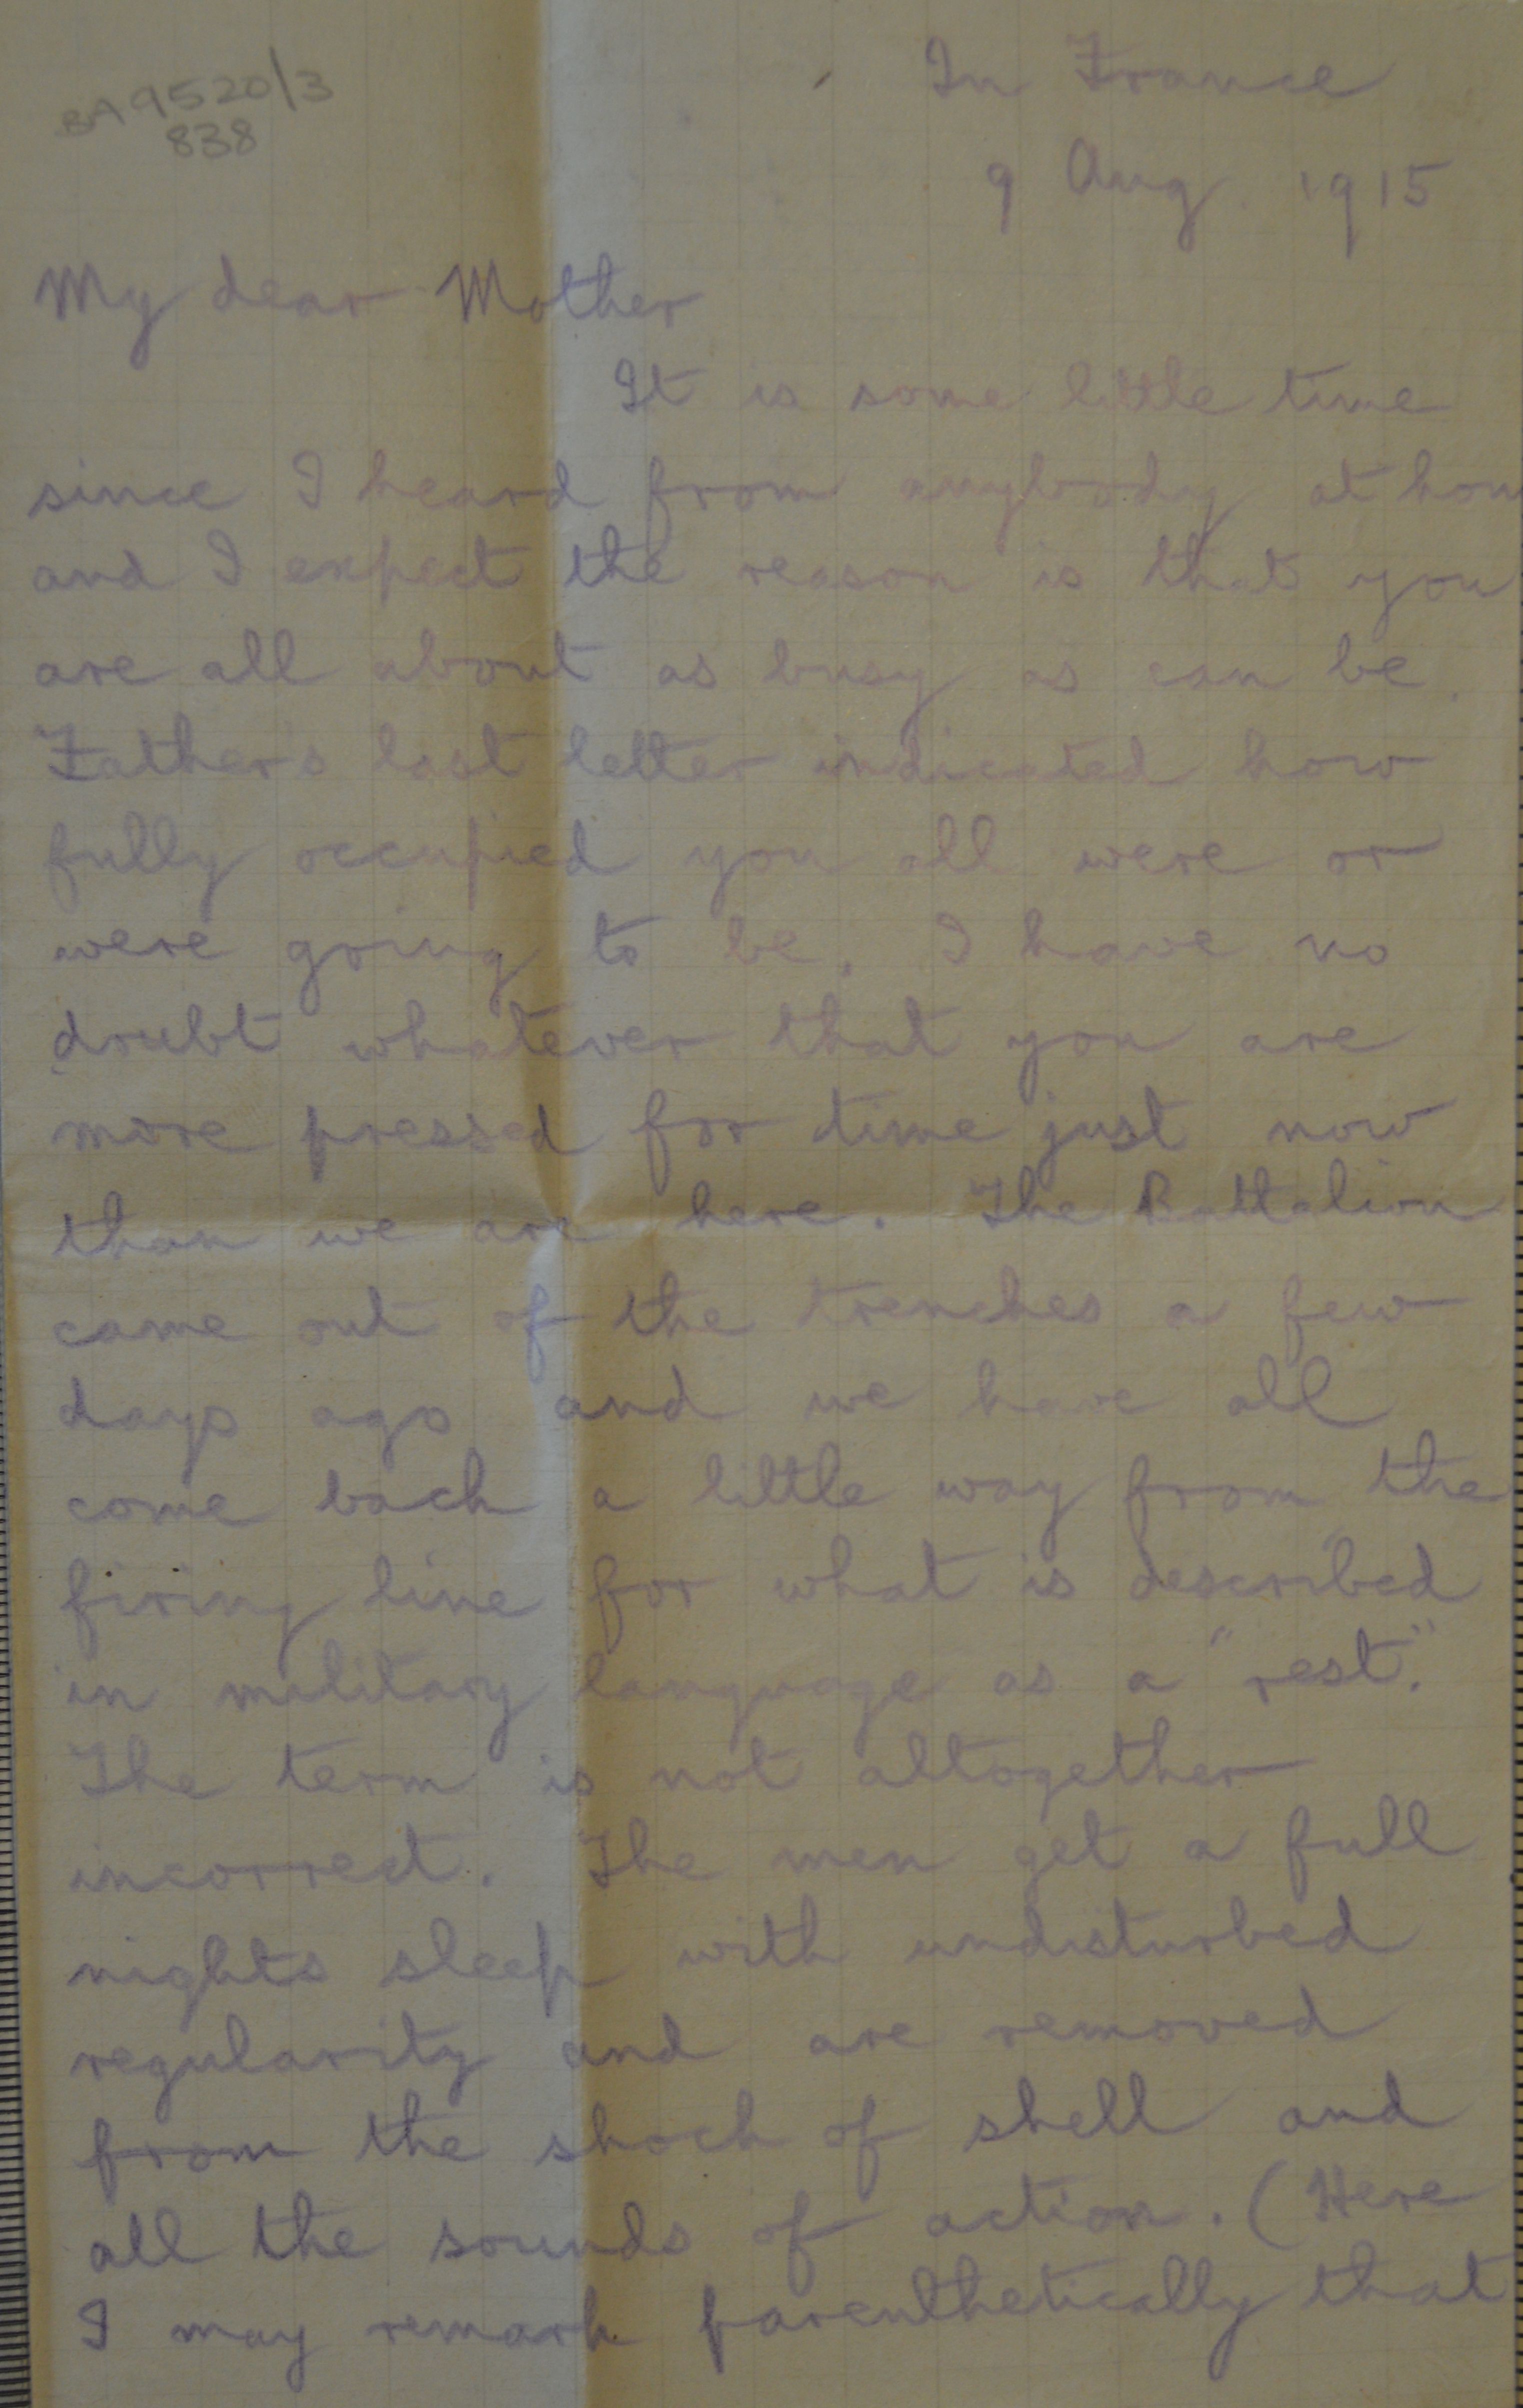 BA 9520/3
838
In France
9 Aug. 1915
My dear Mother
It is some little time
since I heard from anybody at hom
and I expect the reason is that you
are all about as busy as can be.
Fathers last letter indicated how
fully occupied you all were or
were going to be. I have no
doubt whatever that you are
more pressed for time just now
than we are here. The Battalion
came out of the trenches a few
days ago and we have all
come back a little way from the
firing line for what is described
in military language as a "rest".
The term is not altogether
incorrect. The men get a full
nights sleep with undisturbed
regularity and are removed
from the shock of shell and
all the sounds of action. (Here
I may remark parenthetically that